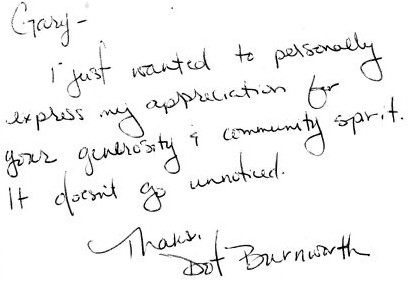 Gary -
I just wanted to personally
express my appreciation for
your generosity & community sprit.
It doesn't go unnoticed.
Thanks.
Dot Burnworth